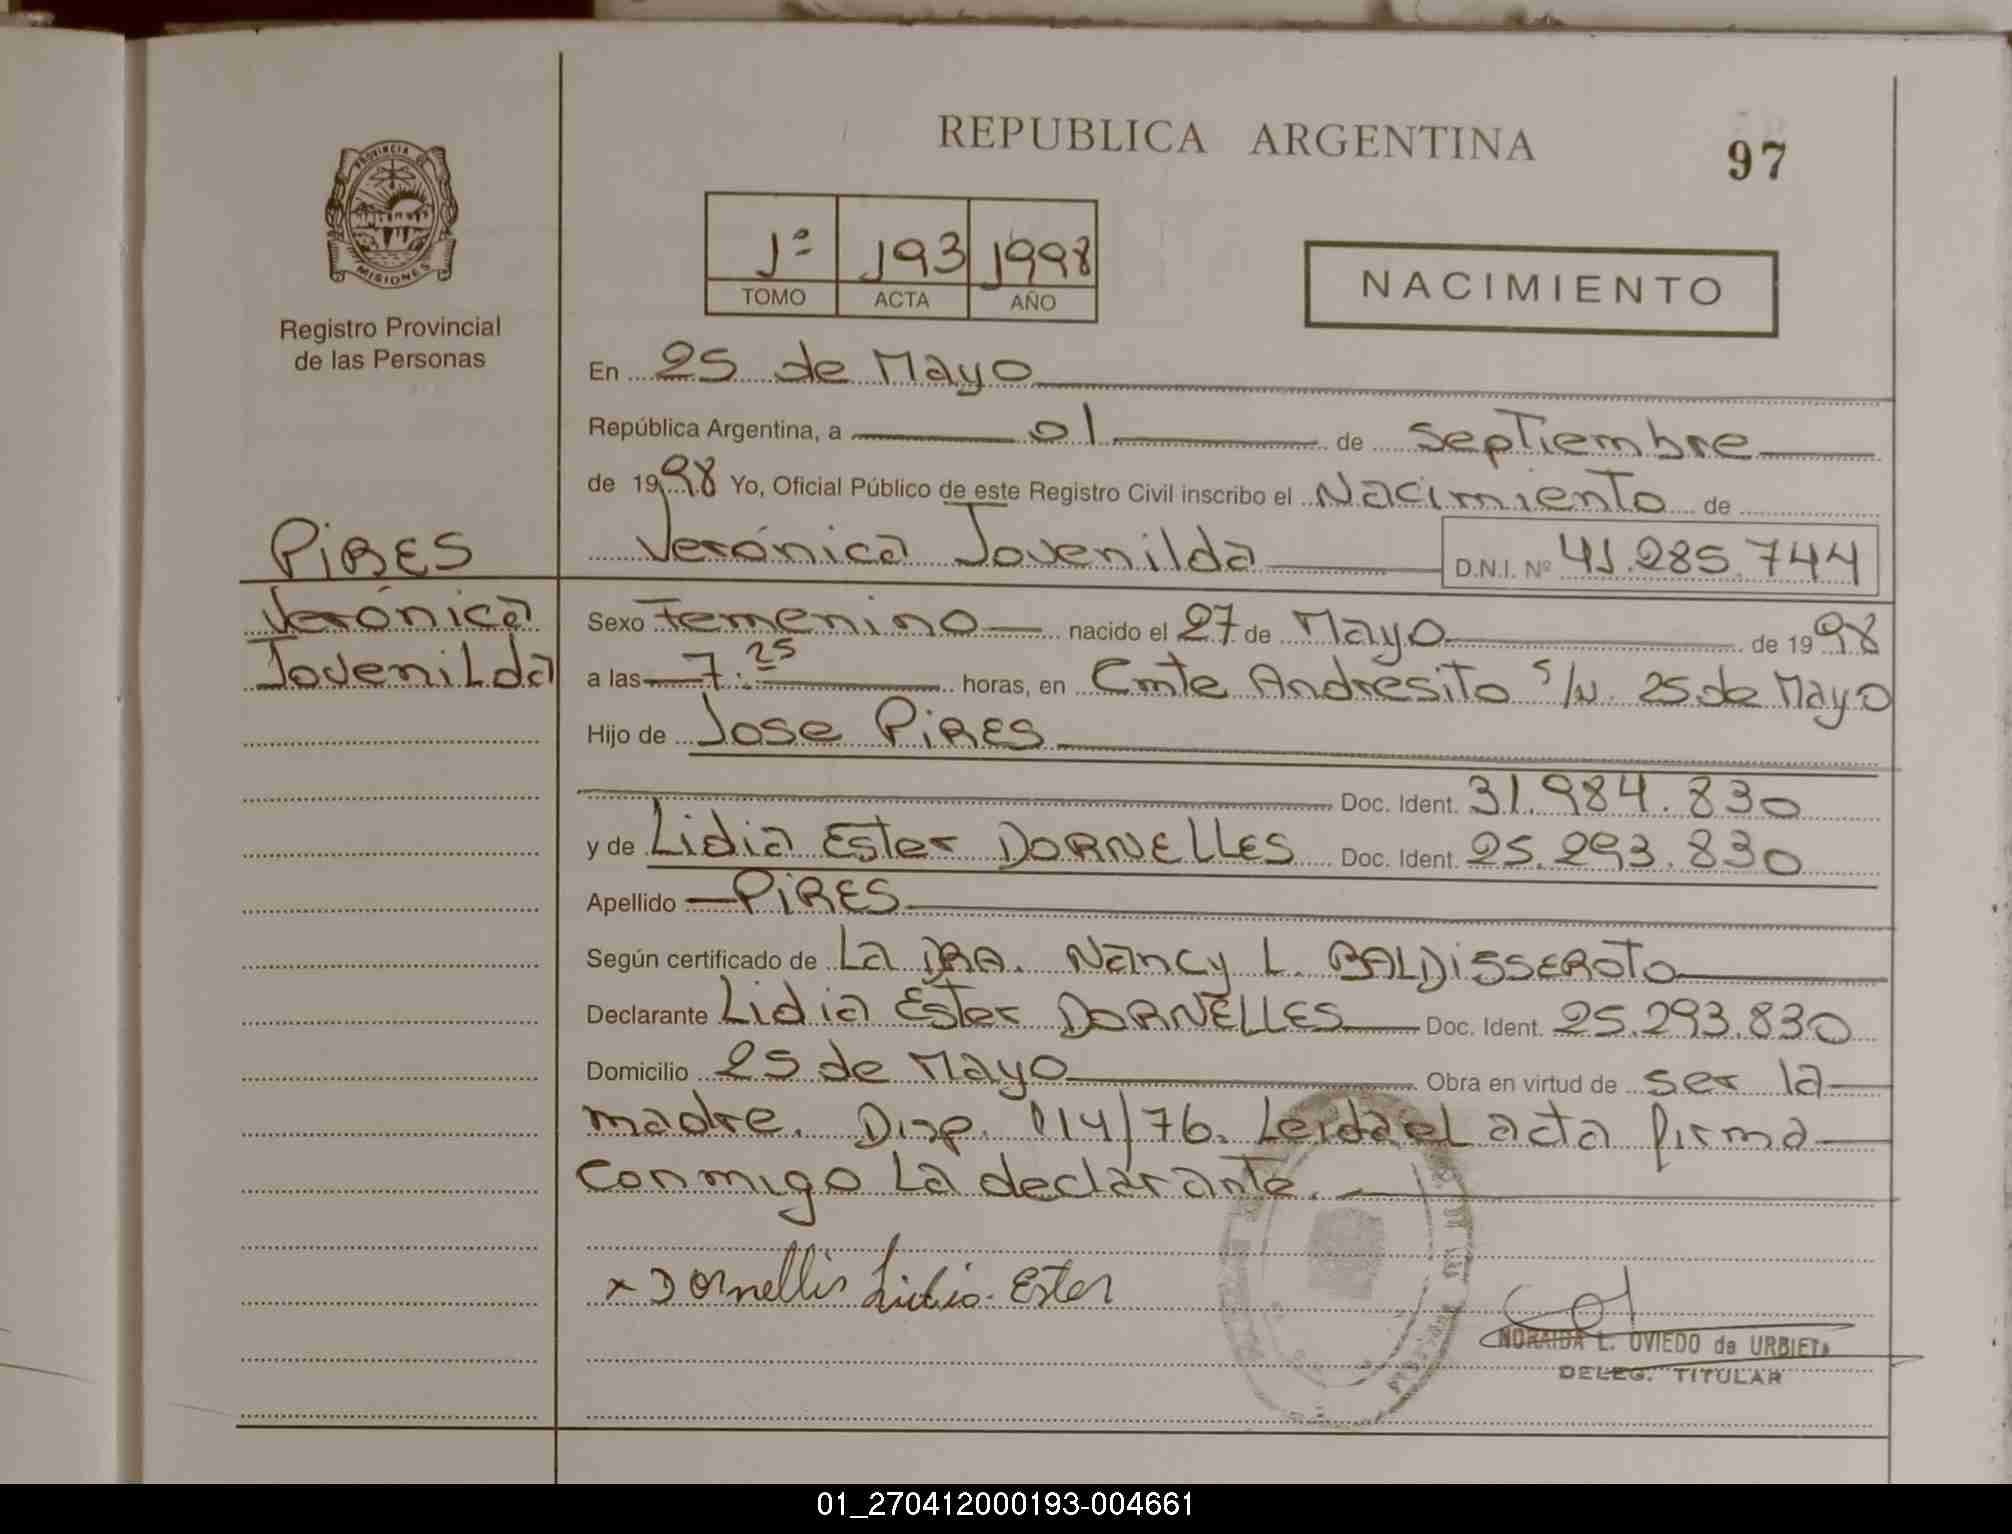 REPUBLICA ARGENTINA
97
PROVINCIA DE
MISIONES
Registro Provincial
de las Personas
1º 193 1998
TOMO ACTA AÑO
NACIMIENTO
En 25 de Mayo
República Argentina, a 01 de septiembre
de 1998 Yo, Oficial Público de este Registro Civil inscribo el Nacimiento de
Verónica Jovenilda D.N.I. Nº 41.285.744
PIRES
Verónica
Jovenilda
Sexo Femenino nacido el 27 de Mayo de 1998
a las 7:25 horas, en Cmte Andresito s/n. 25 de Mayo
Hijo de Jose PIRES
Doc. Ident. 31.984.830
y de Lidia Ester DORNELLES Doc. Ident. 25.293.830
Apellido PIRES
Según certificado de La DRA. Nancy L. BALDISSEROTO
Declarante Lidia Ester DORNELLES Doc. Ident. 25.293.830
Domicilio 25 de Mayo Obra en virtud de ser la
madre. Disp. 114/76. Leida el acta firma
conmigo la declarante.
x Dornellis Lidia Ester
NORAIDA L. OVIEDO de URBIETA
DELEG. TITULAR
01_270412000193-004661